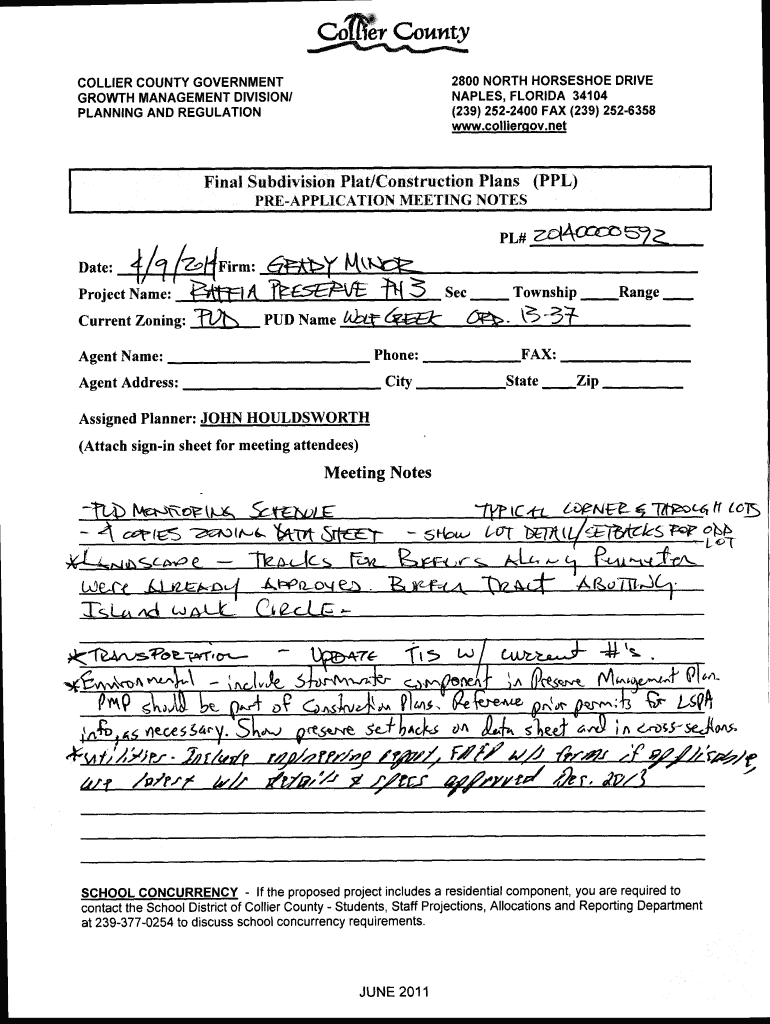 Collier County
COLLIER COUNTY GOVERNMENT
GROWTH MANAGEMENT DIVISION/
PLANNING AND REGULATION
2800 NORTH HORSESHOE DRIVE
NAPLES, FLORIDA 34104
(239) 252-2400 FAX (239) 252-6358
www.colliergov.net
Final Subdivision Plat/Construction Plans (PPL)
PRE-APPLICATION MEETING NOTES
PL# 20140000592
Date: 4/9/2014 Firm: GRADY MINOR
Project Name: RAFFIA PRESERVE PH 3 Sec Township Range
Current Zoning: PUD PUD Name WOLF CREEK ORD. 13-37
Agent Name: Phone: FAX:
Agent Address: City State Zip
Assigned Planner: JOHN HOULDSWORTH
(Attach sign-in sheet for meeting attendees)
Meeting Notes
-PUD MONITORING SCHEDULE TYPICAL CORNER & THROUGH LOTS
- 4 COPIES ZONING DATA SHEET - SHOW LOT DETAIL/SETBACKS FOR ODD
LOT
*LANDSCAPE - TRACKS FOR BUFFERS ALONG Perimeter
were ALREADY APPROVED. BUFFER TRACT ABUTTING
ISLAND WALK CIRCLE-
*TRANSPORTATION - UPDATE TIS W/ current #'s.
*Environmental - include stormwater component in Preserve Management Plan.
PMP should be part of Construction Plans. Reference prior permits for LSPA
info, as necessary. Show preserve setbacks on data sheet and in cross-sections.
*utilities - Include engineering report, FDEP w/s forms if applicable,
use latest w/s details & specs approved Dec. 2013
SCHOOL CONCURRENCY - If the proposed project includes a residential component, you are required to
contact the School District of Collier County - Students, Staff Projections, Allocations and Reporting Department
at 239-377-0254 to discuss school concurrency requirements.
JUNE 2011